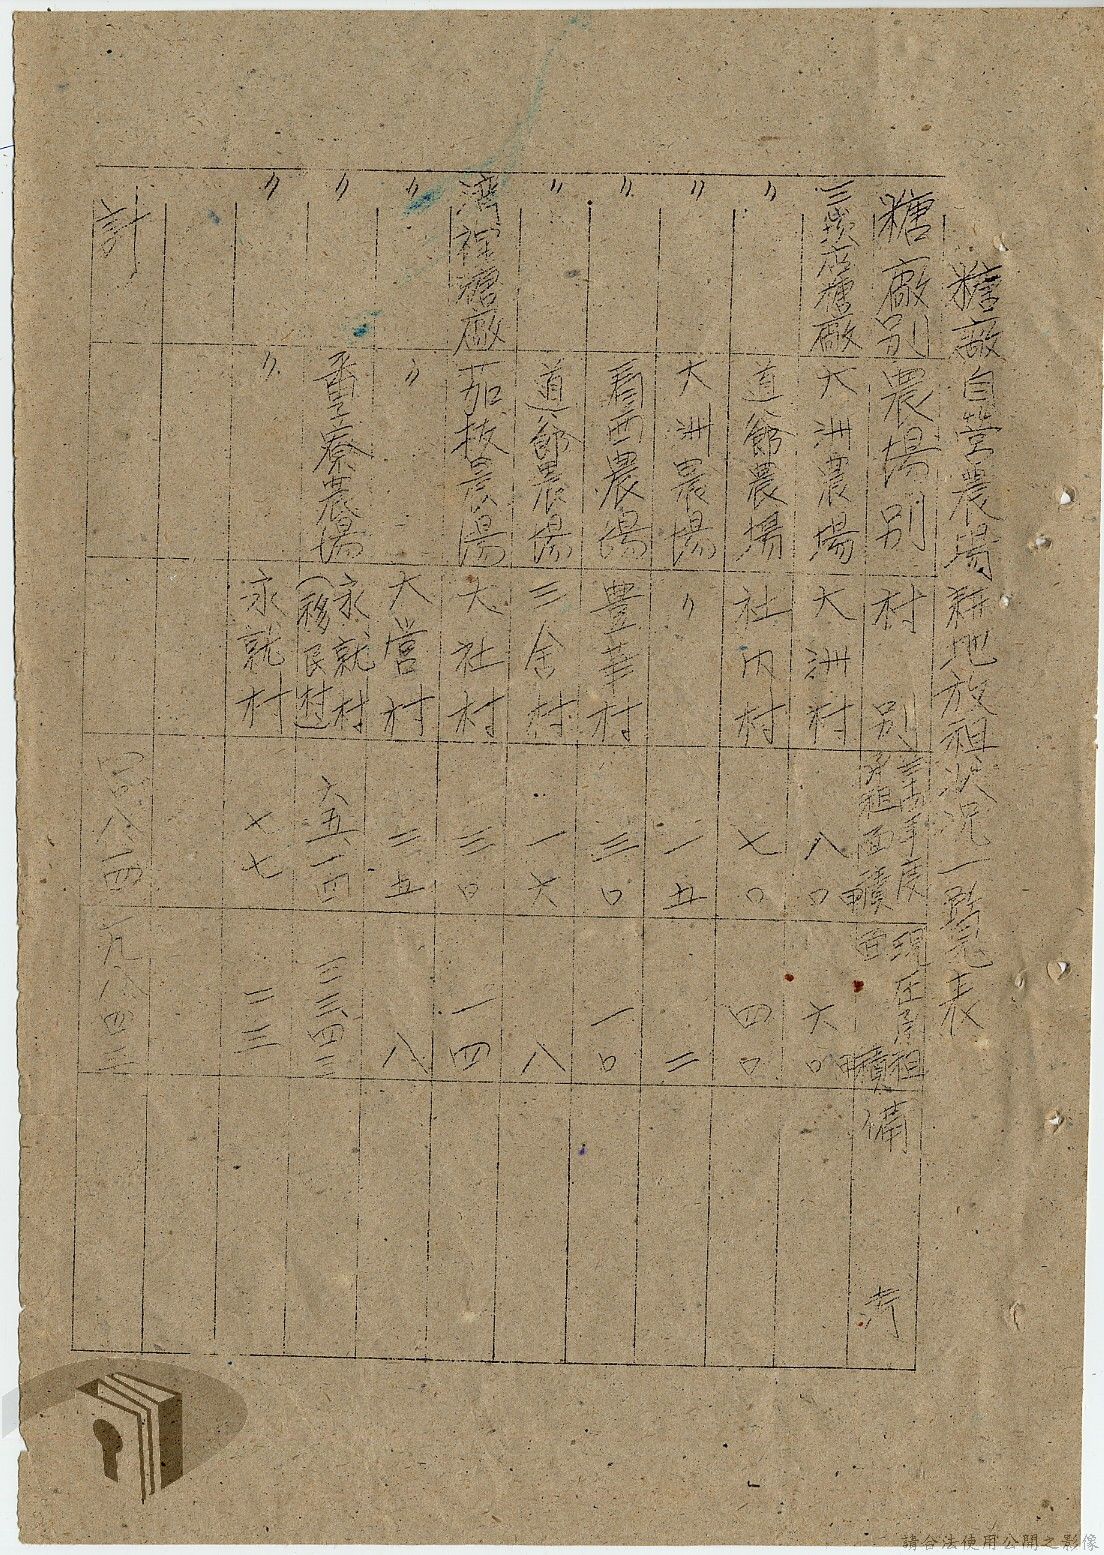 糖廠自營農場耕地放租狀況一覽表
糖廠別 農場別 村別 年度承租面積 甲 現在承租面積 甲 備考
三崁店糖廠 大洲農場 大洲村 八〇 六〇
〃 道爺農場 社內村 七〇 四〇
〃 大洲農場 〃 一五 二
〃 看西農場 豐華村 三〇 一〇
〃 道爺農場 三舍村 一六 八
灣裡糖廠 茄拔農場 大社村 三〇 一四
〃 〃 大營村 二五 八
〃 番子寮農場 永就村(移民村) 六五一四 三三四三
〃 〃 永就村 七七 二三
計 四〇八一四 一九八四三
請合法使用公開之影像